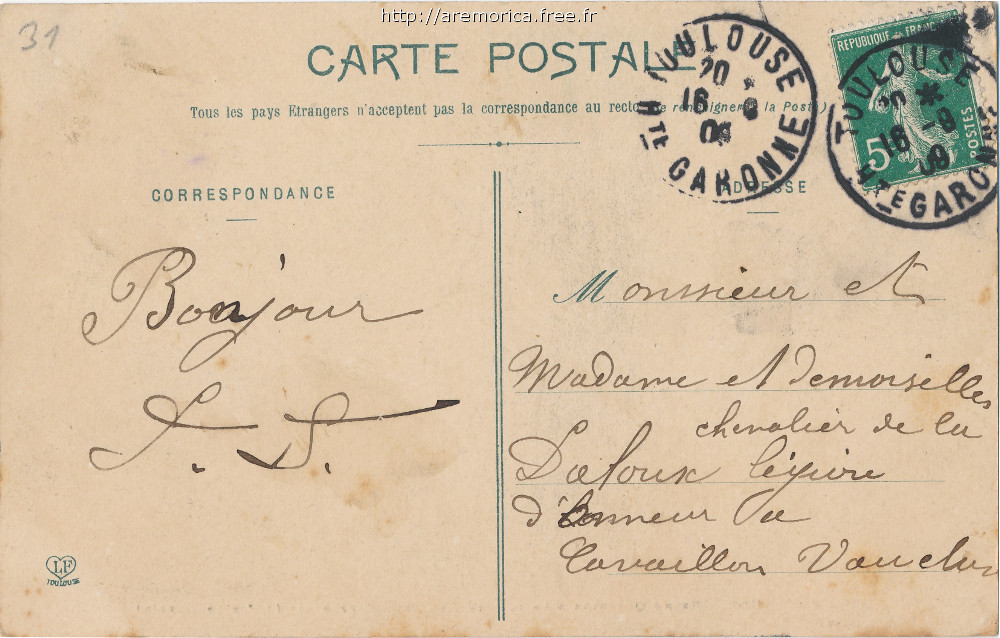 http://aremorica.free.fr
31
CARTE POSTALE
Tous les pays Etrangers n'acceptent pas la correspondance au recto (se renseigner à la Poste)
TOULOUSE
20
16 - 9
09
HTE GARONNE
RÉPUBLIQUE FRANÇAISE
5
POSTES
TOULOUSE
20 *
16 - 9
09
HTE GARONNE
CORRESPONDANCE
Bonjour
ADRESSE
Monsieur et
Madame et Demoiselles
chevalier de la
légion
d'honneur a
Cavaillon Vaucluse
LF
TOULOUSE